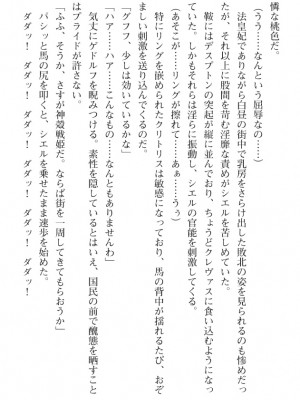 憐な桃色だ。
(うう……なんという屈辱なの……)
法皇妃でありながら白昼の街中で乳房をさらけ出した敗北の姿を見られるのも惨めだっ
たが、それ以上に股間を苛む淫靡な責めがシエルを苦しめていた。
鞍にはディスプトンの突起が縦に並んでおり、ちょうどクレヴァスに食い込むようになっ
ていた。しかもそれらは淫らに振動し、シエルの官能を刺激してくる。
(あそこが……リングが擦れて……あぁ……うぅ)
特にリングを嵌められたクリトリスは敏感になっており、馬の背中が揺れるたび、おぞ
ましい刺激を送り込んでくるのだ。
「グフフ、少しは効いているかな」
「ハア……ハアー……こんなもの……なんともありませんわ」
気丈にゲドルフを睨みつける。素性を隠しているとはいえ、国民の前で醜態を晒すこと
はプライドが許さない。
「ふふ、そうか、さすが神殻戦姫だ。ならば街を一周してきてもらおうか」
パシッと馬の尻を叩くと、シエルを乗せたまま速歩を始めた。
ダダッ! ダダッ! ダダッ! ダダッ!
ダダッ! ダダッ! ダダッ! ダダッ!